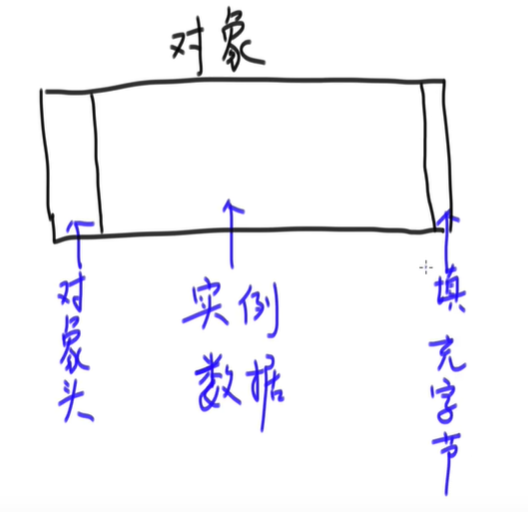 对象
对象头
实例
数据
填充字节